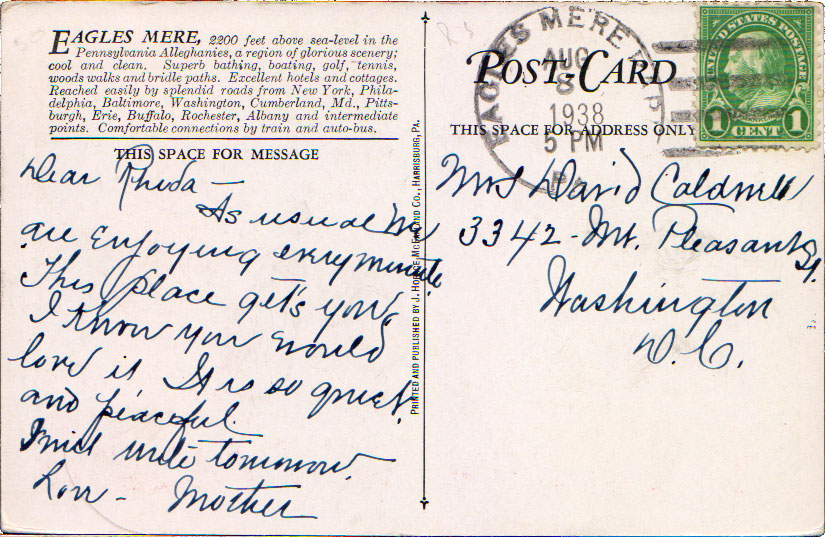 EAGLES MERE, 2200 feet above sea-level in the
Pennsylvania Alleghanies, a region of glorious scenery;
cool and clean. Superb bathing, boating, golf, tennis,
woods walks and bridle paths. Excellent hotels and cottages.
Reached easily by splendid roads from New York, Phila-
delphia, Baltimore, Washington, Cumberland, Md., Pitts-
burgh, Erie, Buffalo, Rochester, Albany and intermediate
points. Comfortable connections by train and auto-bus.
THIS SPACE FOR MESSAGE
Dear Rhoda —
As usual we
are enjoying every minute
This place gets you,
I know you would
love it It is so quiet
and peaceful.
I will write tomorrow.
Love - Mother
PRINTED AND PUBLISHED BY J. HORACE MCFARLAND CO., HARRISBURG, PA.
R S
EAGLES MERE
AUG
8
1938
5 PM
PA.
POST-CARD
THIS SPACE FOR ADDRESS ONLY
UNITED STATES POSTAGE
1 CENT 1
Mrs David Caldwell
3342 - Mt. Pleasant St.
Washington
D.C.